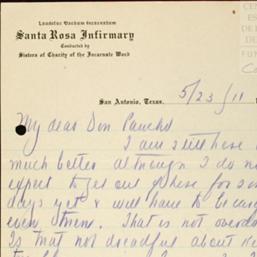 Laudetur Verbum Incarnatum
Santa Rosa Infirmary
Conducted by
Sisters of Charity of the Incarnate Word
San Antonio, Texas, 5/23/11
My dear Don Pancho
I am still here
much better although I do no
expect to get out of here for som
days yet & will have to be care
even then. That is not overdo
Is that not dreadful about